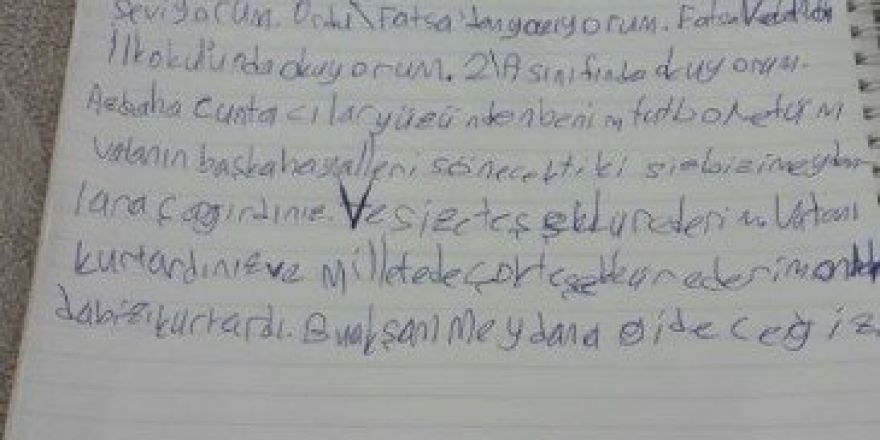 seviyorum. Ordu\Fatsa'danyazıyorum. Fatsa
İlkokulundaokuyorum. 2\A sınıfındaokuyorum.
Az daha Cuntacılaryüzündenbenimfutbol
vatanın başkahayalleri sönecektiki sizbizimeydan
laraçağırdınız. Vesizeteşekkürederim. Vatanı
kurtardınızve Milletedeçokteşekkürederimonlar
dabizikurtardı. Buakşam Meydana gideceğiz.